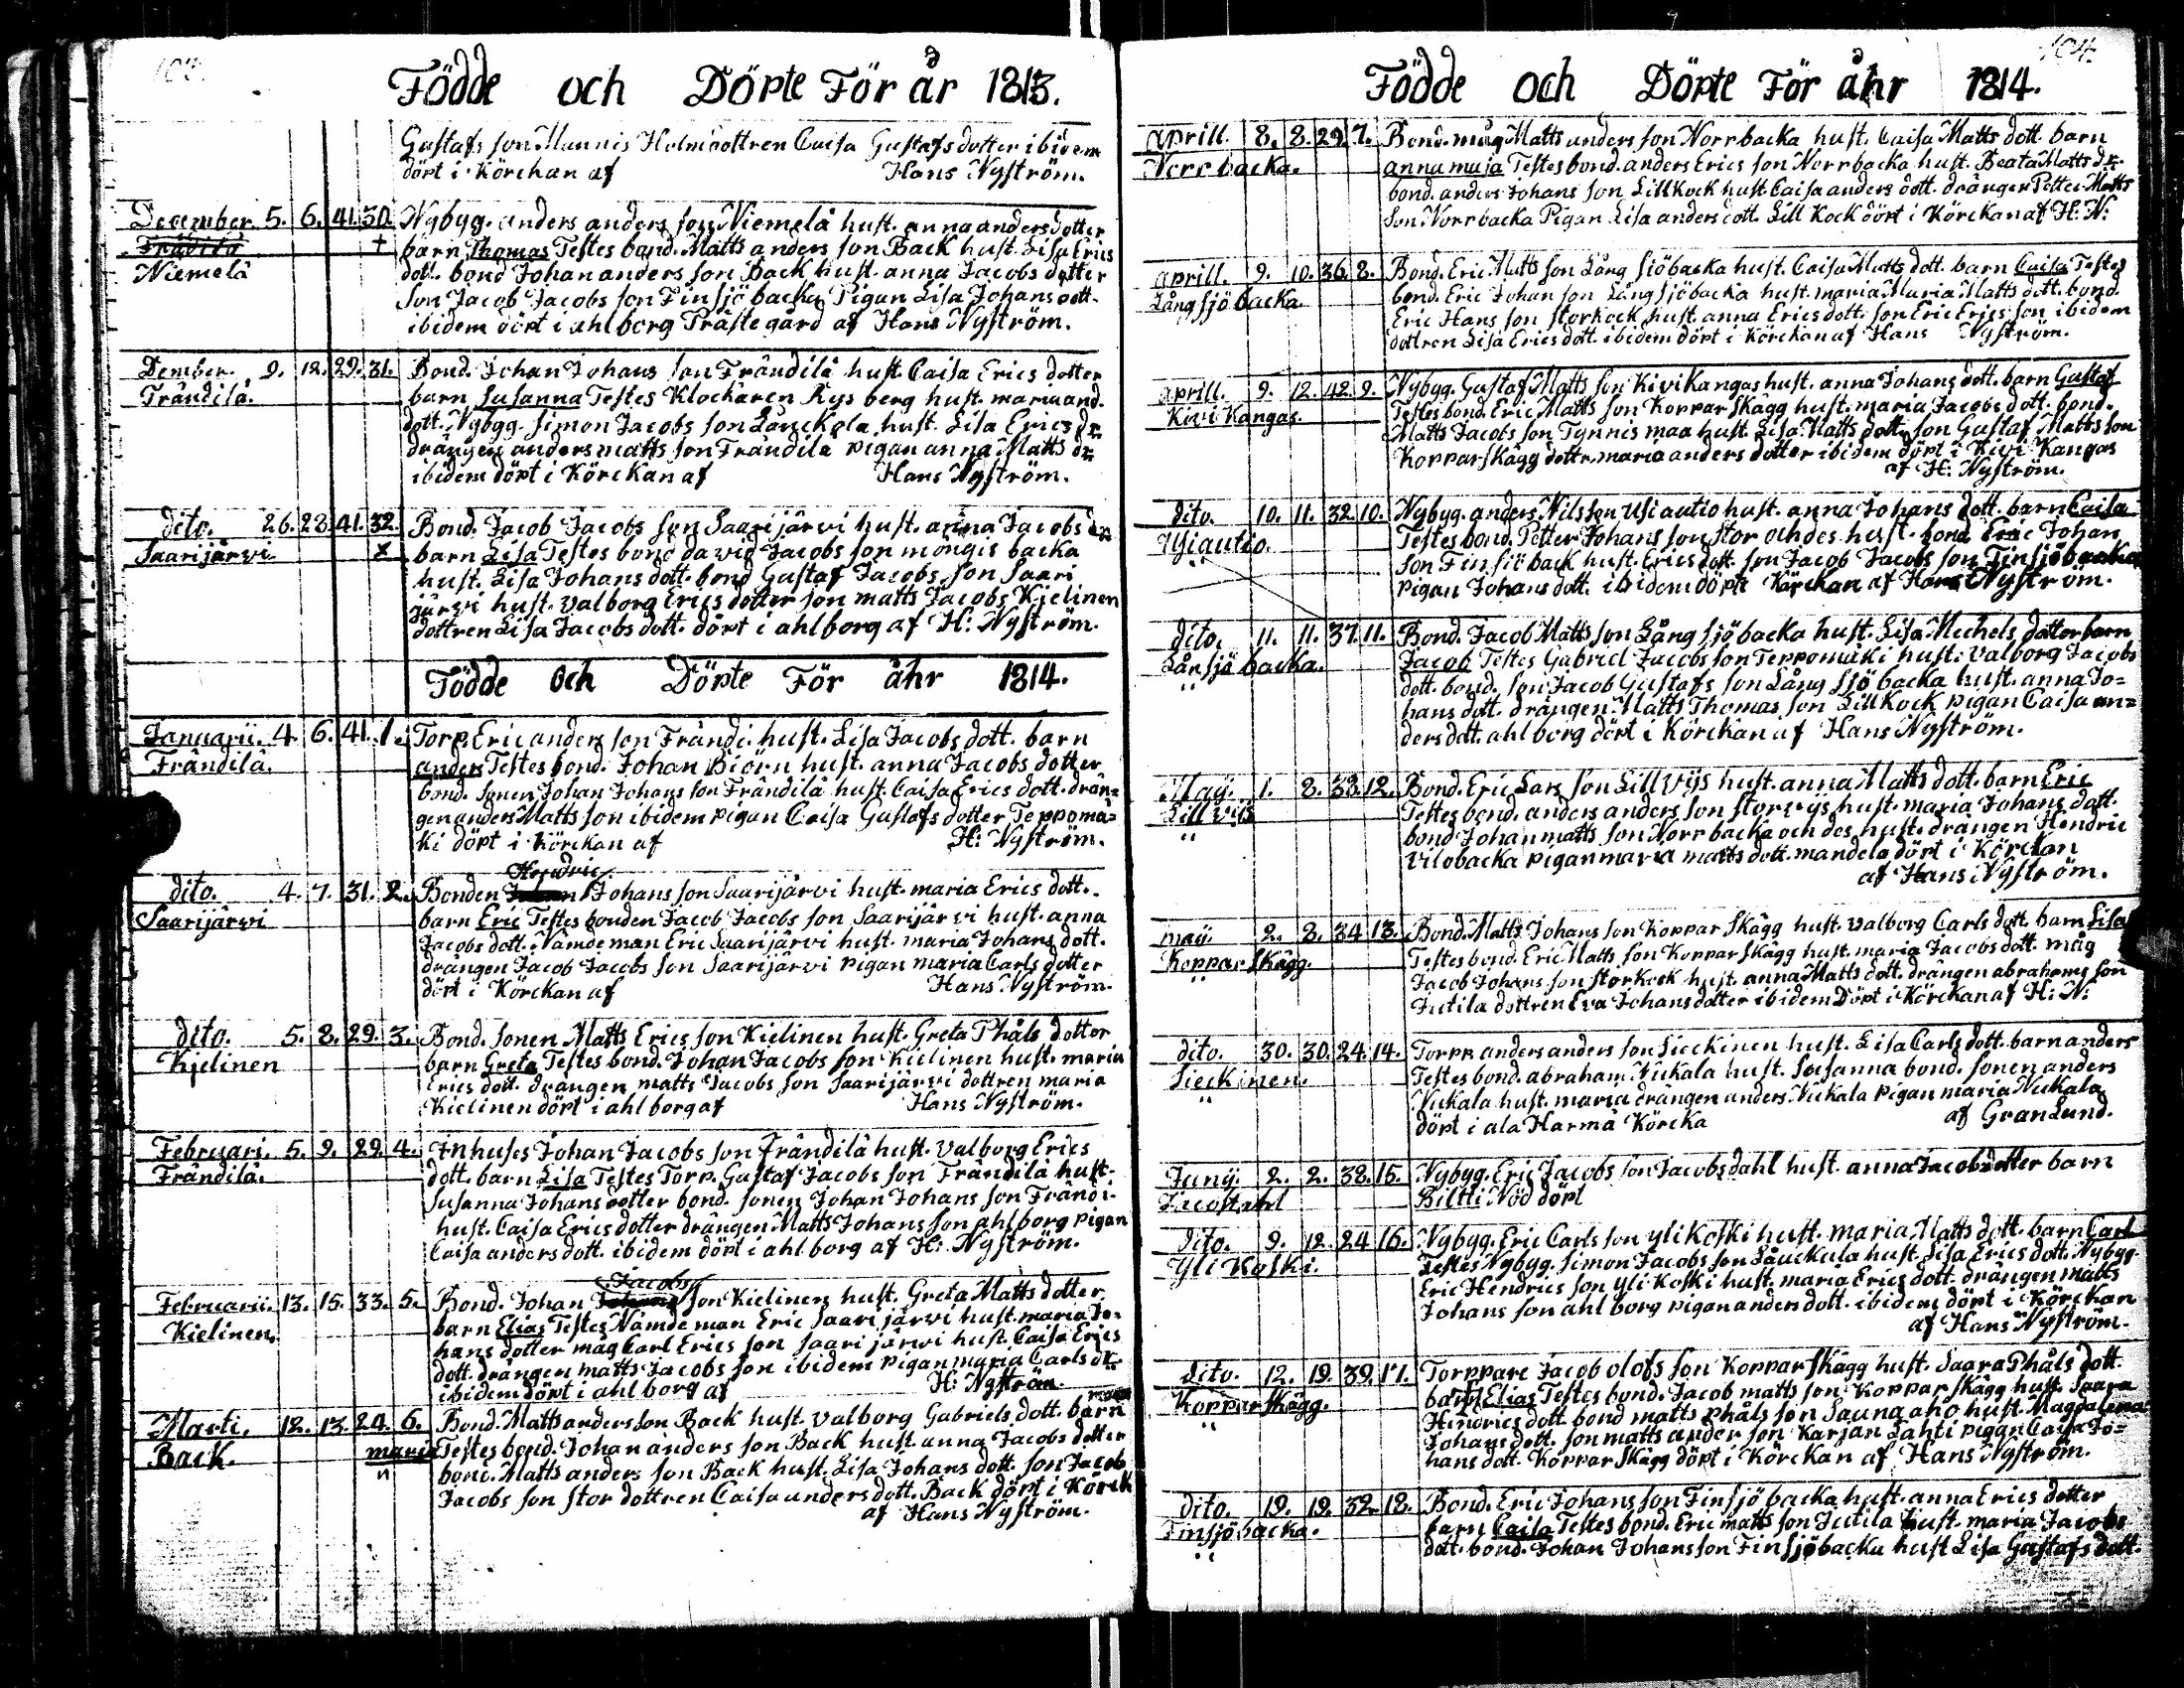 103.
Födde och Döpte För år 1813.
Gustafs son Munnis Holm dottren Caisa Gustafs dotter ibidem
döpt i Körckan af Hans Nyström.
December 5. 6. 41. 30. Nybyg. anders anders son Niemelä hust. anna anders dotter
Frändilä + barn Thomas Testes bond. Matts anders son Back hust. Lisa Erics
Niemelä dott. bond Johan anders son Back hust. anna Jacobs dotter
son Jacob Jacobs son Finsjö backa Pigan Lisa Johans dott.
ibidem döpt i ahlborg Prästegård af Hans Nyström.
Dember. 9. 12. 29. 31. Bond. Johan Johans son Frändilä hust. Caisa Erics dotter
Frändilä. barn Susanna Testes Klockaren Rys berg hust. maria and.
dott. Nybygg. Simon Jacobs son Lauckola hust. Lisa Erics dr.
drängen anders matts son Frändilä pigan anna Matts dr
ibidem döpt i Körckan af Hans Nyström.
dito. 26. 28. 41. 32. Bond. Jacob Jacobs son Saarijärvi hust. anna Jacobs dr
Saarijärvi x barn Lisa Testes bond david Jacobs son mongis backa
hust. Lisa Johans dott. bond Gustaf Jacobs son Saari
järvi hust. valborg Erics dotter son matts Jacobs Kielinen
dottren Lisa Jacobs dott. döpt i ahlborg af H: Nyström.
Födde och Döpte För åhr 1814.
Januarii. 4. 6. 41. 1. Torp. Eric anders son Frändi. hust. Lisa Jacobs dott. barn
Frändilä. anders Testes bond. Johan Biörn hust. anna Jacobs dotter
bond. sonen Johan Johans son Frändilä hust. Caisa Erics dott. drän=
gen anders Matts son ibidem pigan Caisa Gustafs dotter Teppomä=
ki döpt i Körckan af H: Nyström.
Hendric
dito. 4. 7. 31. 2. Bonden Johan Johans son Saarijärvi hust. maria Erics dott.
Saarijärvi barn Eric Testes bonden Jacob Jacobs son Saarijärvi hust. anna
Jacobs dott. Nämde man Eric Saarijärvi hust. maria Johans dott.
drängen Jacob Jacobs son Saarijärvi pigan maria Carls dotter
döpt i Körckan af Hans Nyström.
dito. 5. 8. 29. 3. Bond. sonen Matts Erics son Kielinen hust. Greta Phåls dotter
Kielinen barn Greta Testes bond. Johan Jacobs son Kielinen hust. maria
Erics dott. drängen matts Jacobs son Saarijärvi dottren maria
Kielinen döpt i ahlborg af Hans Nyström.
Februari. 5. 9. 29. 4. Inhuses Johan Jacobs son Frändilä hust. valborg Erics
Frändilä. dott. barn Lisa Testes Torp. Gustaf Jacobs son Frändilä hust.
Susanna Johans dotter bond. sonen Johan Johans son Frändi.
hust. Caisa Erics dotter drängen Matts Johans son ahlborg pigan
Caisa anders dott. ibidem döpt i ahlborg af H: Nyström.
Jacobs
Februarii. 13. 15. 33. 5. Bond. Johan Johans son Kielinen hust. Greta Matts dotter
Kielinen. barn Elias Testes Nämde man Eric Saari järvi hust. maria Jo=
hans dotter mag Carl Erics son Saari järvi hust. Caisa Erics
dott. drängen matts Jacobs son ibidem pigan maria Carls dr
ibidem döpt i ahlborg af H: Nyström.
Marti. 12. 13. 24. 6. Bond. Matts anders son Back hust. valborg Gabriels dott. barn
Back. maria Testes bond. Johan anders son Back hust. anna Jacobs dotter
bond. Matts anders son Back hust. Lisa Johans dott. son Jacob
Jacobs son stor dottren Caisa anders dott. Back döpt i Körck
af Hans Nyström.
104.
Födde och Döpte För åhr 1814.
aprill. 8. 8. 29. 7. Bond. måg Matts anders son Norrbacka hust. Caisa Matts dott. barn
Norrbacka. anna maja Testes bond. anders Erics son Norrbacka hust. Beata Matts dr.
bond. anders Johans son Lillkock hust Caisa anders dott. drängen Petter Matts
son Norrbacka Pigan Lisa anders dott. Lill Kock döpt i Körckan af H: N:
aprill. 9. 10. 36. 8. Bond. Eric Matts son Lång sjöbacka hust. Caisa Matts dott. barn Caisa Testes
Långsjö backa. bond. Eric Johan son Långsjöbacka hust. maria Maria Matts dott. bond.
Eric Hans son storkock hust. anna Erics dott. son Eric Erics son ibidem
dottren Lisa Erics dott. ibidem döpt i Körckan af Hans Nyström.
aprill. 9. 12. 42. 9. Nybyg. Gustaf Matts son Kivikangas hust. anna Johans dott. barn Gustaf
Kivi Kangas. Testes bond. Eric Matts son Koppar Skägg hust. maria Jacobs dott. bond.
Matts Jacobs son Tynnis maa hust. Lisa Matts dott. son Gustaf Matts son
Kopparskägg dottr. maria anders dotter ibidem döpt i Kivi Kangas
af H: Nyström.
dito. 10. 11. 32. 10. Nybyg. anders Nilsson Usiautio hust. anna Johans dott. barn Caisa
Testes bond. Petter Johans son stor och des hust. bond. Eric Johan
son Finsiö back hust. Erics dott. son Jacob Jacobs son Finsiöbacka
pigan Johans dott. ibidem döpt i Körckan af Hans Nyström.
dito. 11. 11. 37. 11. Bond. Jacob Matts son Lång sjöbacka hust. Lisa Michels dotter barn
Lånsjö backa. Jacob Testes Gabriel Jacobs son Teppomäki hust. valborg Jacobs
" dott. bond. son Jacob Gustafs son Lång sjö backa hust. anna Jo=
hans dott. drängen Matts Thomas son Lillkock pigan Caisa an=
ders dott. ahlborg döpt i Körckan af Hans Nyström.
May. 1. 8. 38. 12. Bond. Eric Lars son Lillvijs hust. anna Matts dott. barn Eric
Lill vijs Testes bond. anders anders son storvys hust. maria Johans dott.
" bond Johan matts son Norrbacka och des hust. drängen Hendric
Vilobacka pigan maria matts dott. mandela döpt i Körckan
af Hans Nyström.
may. 2. 8. 34. 13. Bond. Matts Johans son Koppar Skägg hust. valborg Carls dott. barn Lisa
Koppar Skägg Testes bond. Eric Matts son Koppar Skägg hust. maria Jacobs dott. måg
" Jacob Johans son storkock hust. anna Matts dott. drängen abrahams son
Jutila dottren Eva Johans dotter ibidem Döpt i Körckan af H: N:
dito. 30. 30. 24. 14. Torpp. anders anders son Sieckinen hust. Lisa Carls dott. barn anders
Sieckinen. Testes bond. abraham Nickala hust. Susanna bond. sonen anders
" Nickala hust. maria drängen anders Nickala pigan maria Nickala
döpt i ala Harmä Körcka af GranLund.
Juny. 2. 2. 38. 15. Nybyg. Eric Jacobs son Jacobs dahl hust. anna Jacobs dotter barn
Biltti Nöd döpt
dito. 9. 12. 24. 16. Nybyg. Eric Carls son yli koski hust. maria Matts dott. barn Carl
Yli Koski. Testes Nybyg. Simon Jacobs son Lauckula hust. Lisa Erics dott. Nybyg.
Eric Hendrics son Yli Koski hust. maria Erics dott. drängen matts
Johans son ahl borg pigan anders dott. ibidem döpt i Körckan
af Hans Nyström.
dito. 12. 19. 39. 17. Torppare Jacob olofs son Koppar Skägg hust. Saara Phåls dott.
Koppar Skägg. barn Elias Testes bond. Jacob matts son Koppar Skägg hust. Saara
" Hindrics dott. bond matts phåls son Sauna aho hust. Magdalena
Johans dott. son matts ander son Karjan Lahti pigan Caisa Jo=
hans dott. Koppar Skägg döpt i Körckan af Hans Nyström.
dito. 19. 19. 32. 18. Bond. Eric Johans son Finsjö backa hust. anna Erics dotter
Finsjöbacka. barn Caisa Testes bond. Eric matts son Jutila hust. maria Jacobs
" dott. bond. Johan Johans son Finsjöbacka hust Lisa Gustafs dott.